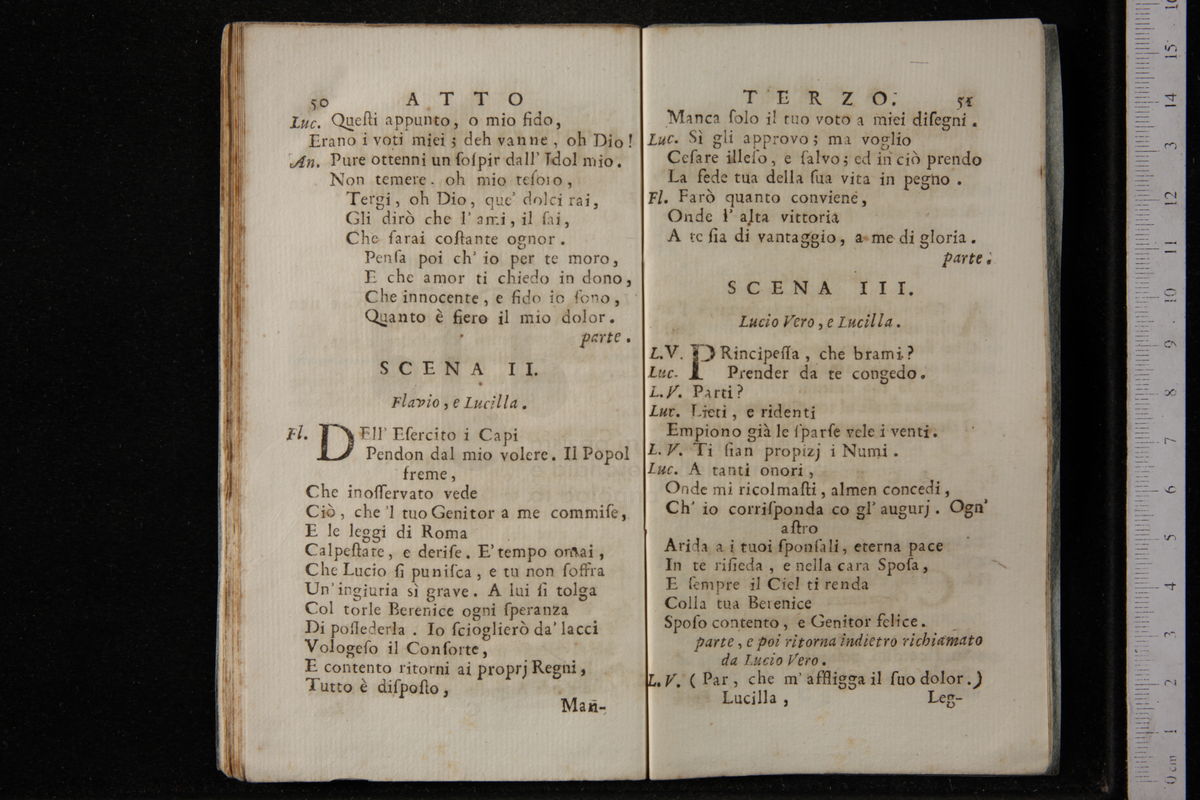 50 ATTO
Luc. Queſti appunto, o mio fido,
Erano i voti miei; deh vanne, oh Dio!
An. Pure ottenni un ſoſpir dall' Idol mio.
Non temere. oh mio teſoro,
Tergi, oh Dio, que' dolci rai,
Gli dirò che l' ami, il ſai,
Che ſarai coſtante ognor.
Penſa poi ch' io per te moro,
E che amor ti chiedo in dono,
Che innocente, e fido io ſono,
Quanto è fiero il mio dolor.
parte.
SCENA II.
Flavio, e Lucilla.
Fl. DEll' Eſercito i Capi
Pendon dal mio volere. Il Popol
freme,
Che inoſſervato vede
Ciò, che 'l tuo Genitor a me commiſe,
E le leggi di Roma
Calpeſtate, e deriſe. E' tempo omai,
Che Lucio ſi puniſca, e tu non ſoffra
Un' ingiuria sì grave. A lui ſi tolga
Col torle Berenice ogni ſperanza
Di poſſederla. Io ſcioglierò da' lacci
Vologeſo il Conſorte,
E contento ritorni ai proprj Regni,
Tutto è diſpoſto,
Man-
TERZO. 51
Manca ſolo il tuo voto a miei diſegni.
Luc. Sì gli approvo; ma voglio
Ceſare illeſo, e ſalvo; ed in ciò prendo
La fede tua della ſua vita in pegno.
Fl. Farò quanto conviene,
Onde l' alta vittoria
A te ſia di vantaggio, a me di gloria.
parte.
SCENA III.
Lucio Vero, e Lucilla.
L.V. PRincipeſſa, che brami?
Luc. Prender da te congedo.
L.V. Parti?
Luc. Lieti, e ridenti
Empiono già le ſparſe vele i venti.
L.V. Ti ſian propizj i Numi.
Luc. A tanti onori,
Onde mi ricolmaſti, almen concedi,
Ch' io corriſponda co gl' augurj. Ogn'
aſtro
Arida a i tuoi ſponſali, eterna pace
In te riſieda, e nella cara Spoſa,
E ſempre il Ciel ti renda
Colla tua Berenice
Spoſo contento, e Genitor felice.
parte, e poi ritorna indietro richiamato
da Lucio Vero.
L.V. (Par, che m' affligga il ſuo dolor.)
Lucilla, Leg-
0 cm 1 2 3 4 5 6 7 8 9 10 11 12 13 14 15 16